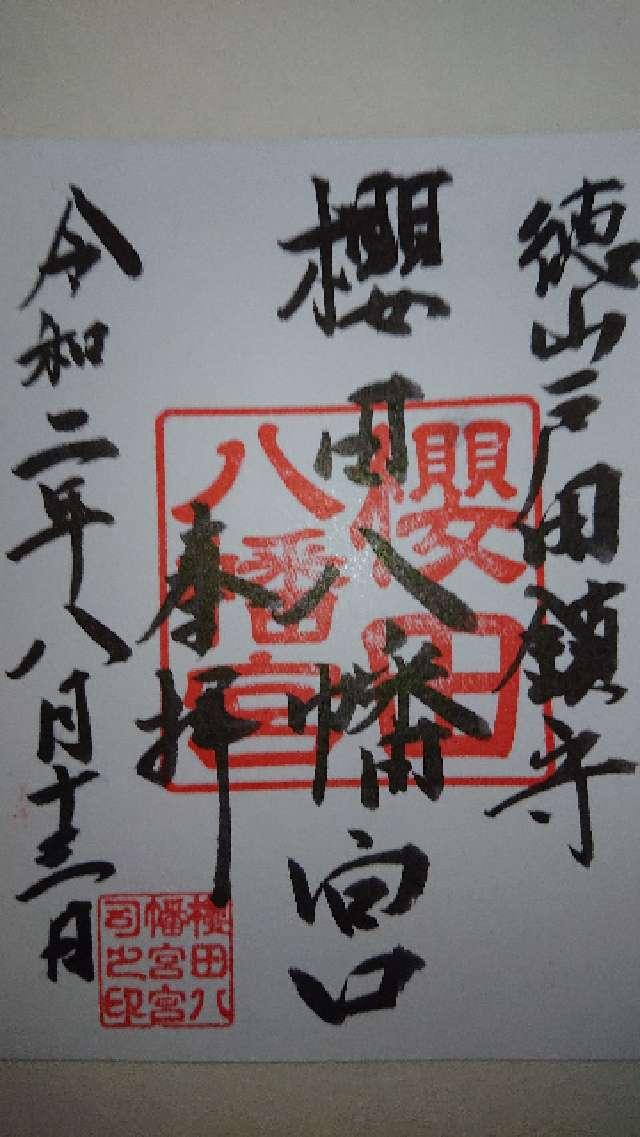 徳山戸田鎮守
櫻田八幡宮
奉拝
令和二年八月十三日
櫻田
八幡宮
櫻田八
幡宮宮
司之印